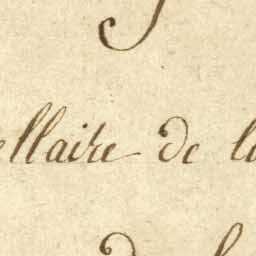 ellaire de la